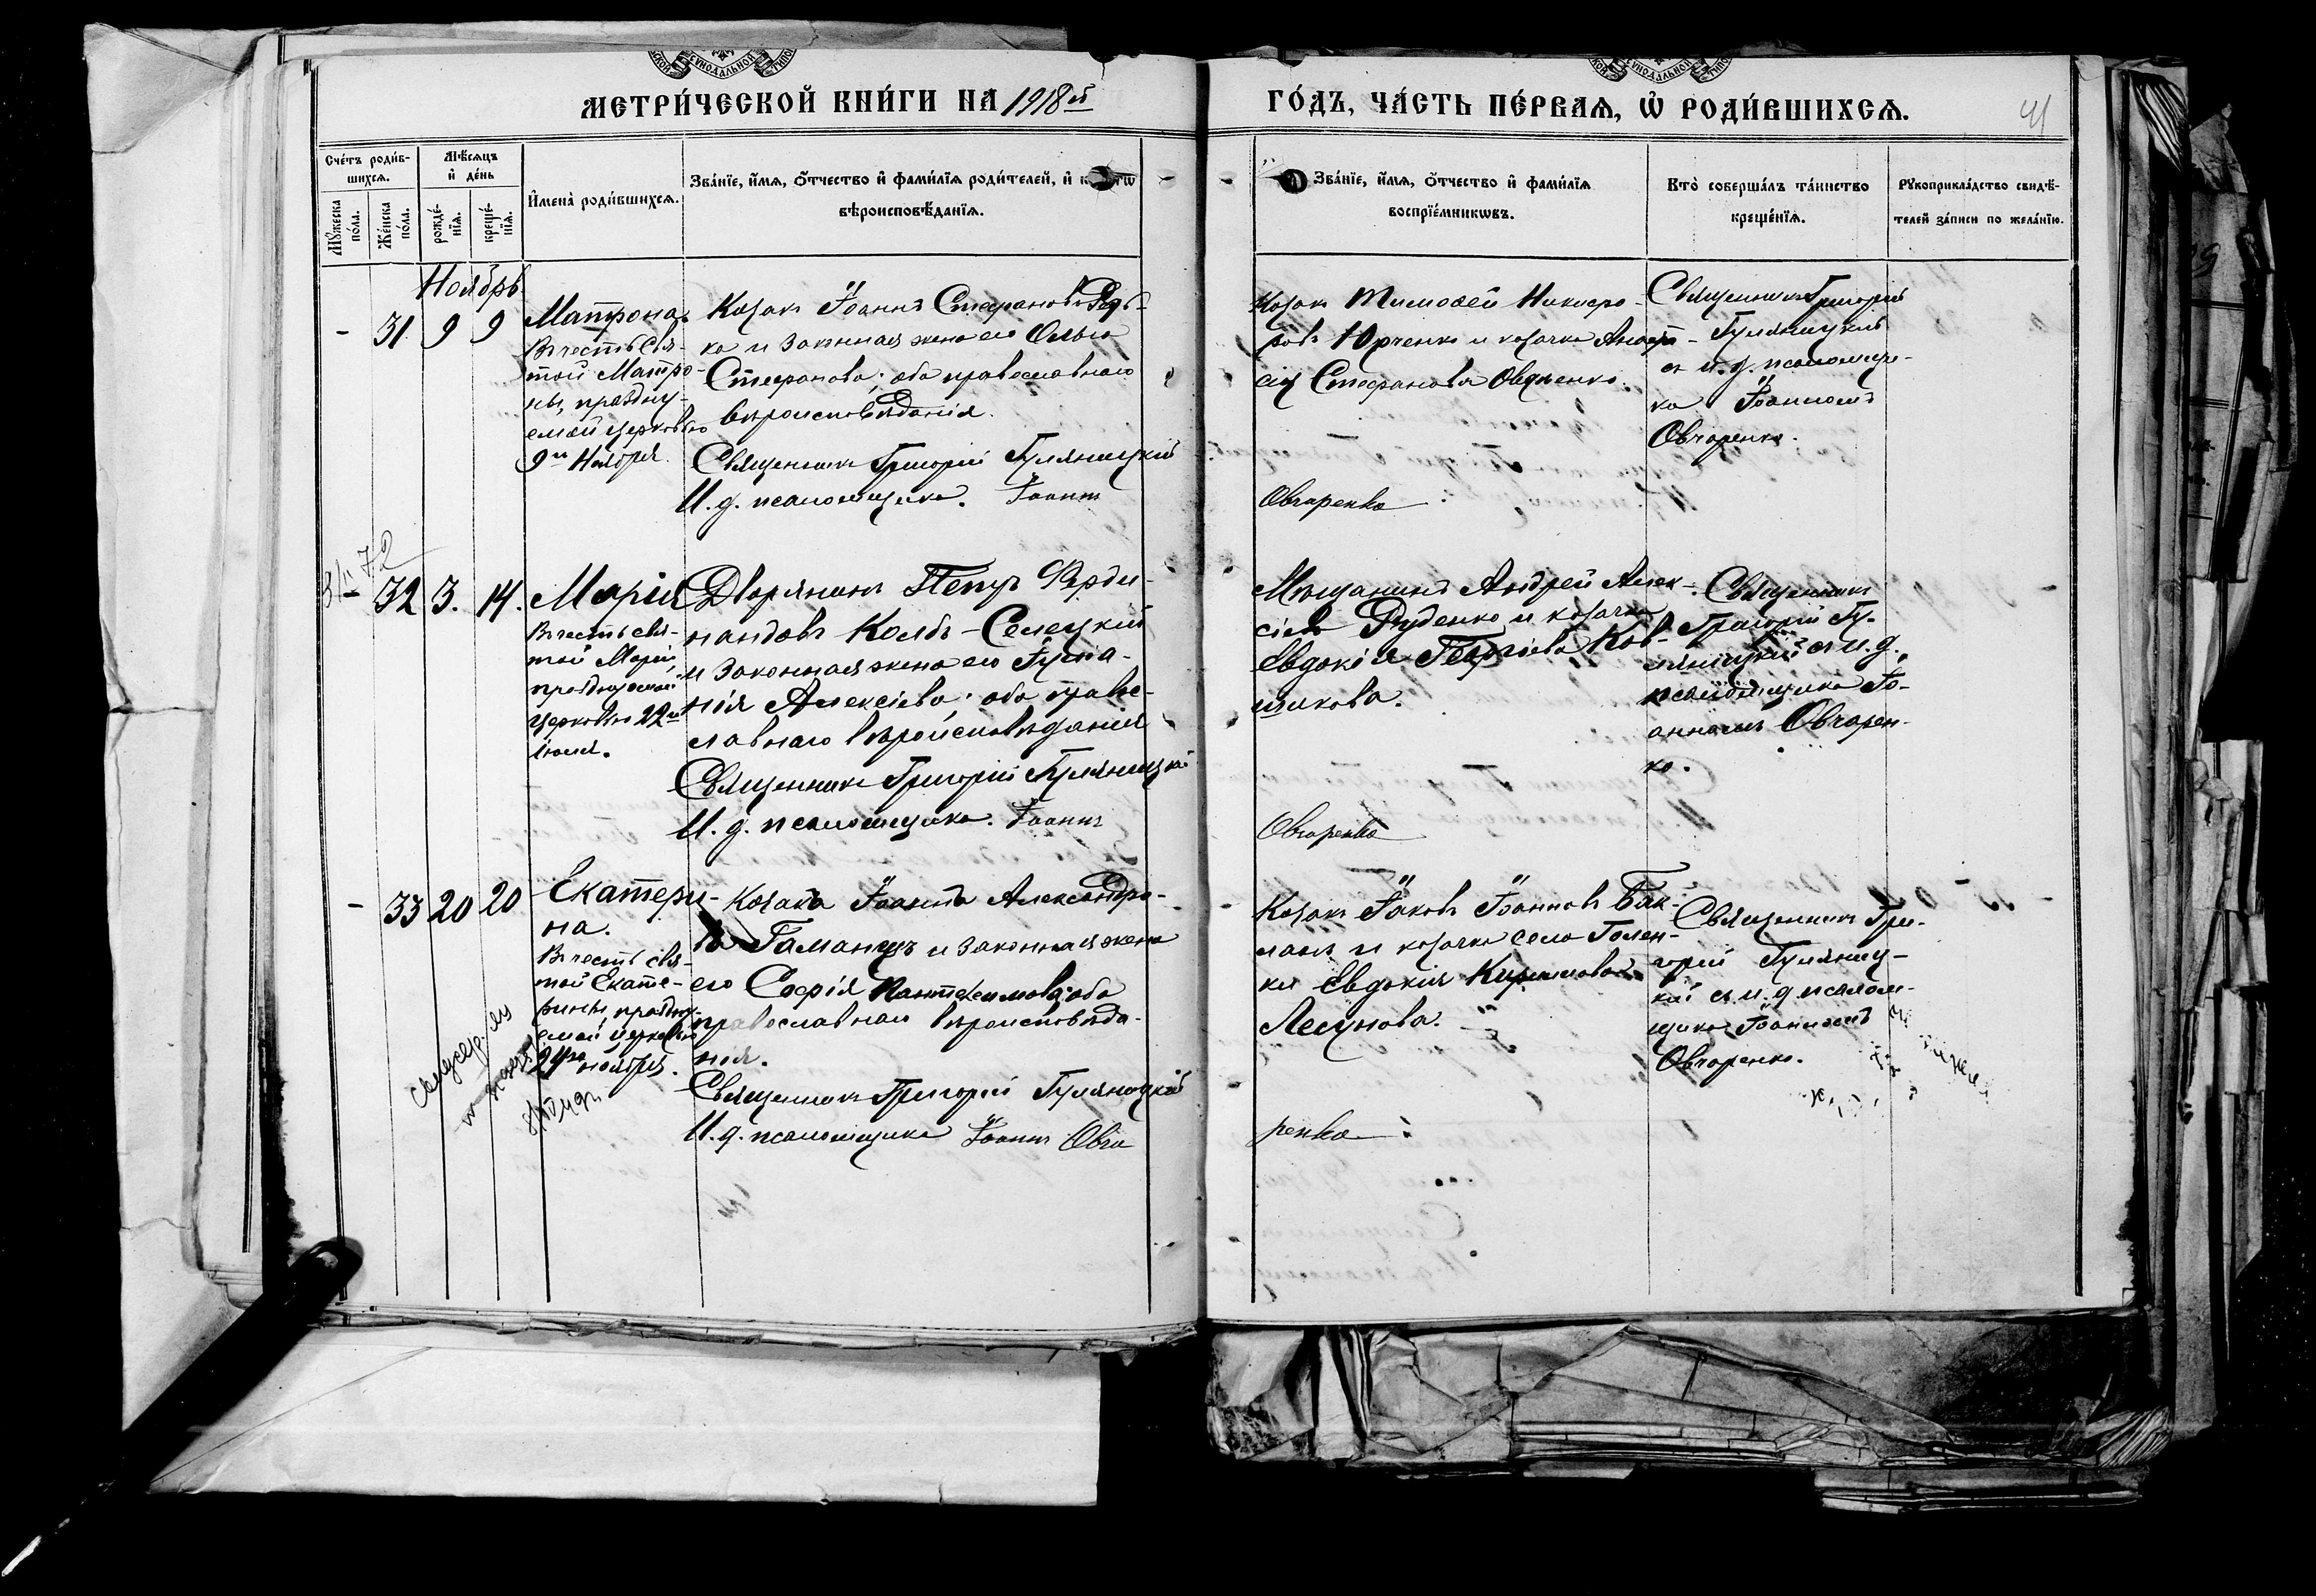 МЕТРИ́ЧЕСКОЙ КНИ́ГИ НА 1918й
ГО́ДЪ, ЧА́СТЬ ПЕ́РВАѦ, Ѿ РОДИ́ВШИХСѦ.
41
Сче́тъ роди́в-
шихсѧ.
Мꙋ́жеска по́ла.
Же́нска по́ла.
Мѣ́сѧцъ
и҆ де́нь
рожде́-
нїѧ.
креще́-
нїѧ.
И҆мена̀ роди́вшихсѧ.
Зва́нїе, и҆́мѧ, ѻ҆́тчество и҆ фами́лїѧ роди́телей, и҆
вѣроисповѣ́данїѧ.
Зва́нїе, и҆́мѧ, ѻ҆́тчество и҆ фами́лїѧ
воспрїе́мникѡвъ.
Кто̀ соверша́лъ та́инство
креще́нїѧ.
Рꙋкоприкла́дство свидѣ́-
телей за́писи по жела́нїю.
Ноябрь
- 31. 9 9
Матрона.
Въ честь Свя-
той Матро-
ны, праздну-
емой церковью
9го Ноября.
Козакъ Іоаннъ Стефановъ Редь-
ка и законная жена его Ольга
Стефанова; оба православнаго
вѣроисповѣданія.
Священникъ Григорій Гуляницкій
И. д. псаломщика. Іоаннъ
Козакъ Тимоѳей Никифо-
ровъ Юрченко и козачка Анаста-
сія Стефанова
Овчаренко
Священникъ Григорій
Гуляницкій
съ и. д. псаломщи-
ка Іоанномъ
Овчаренко.
32 3. 14.
Марія
Въ честь свя-
той Маріи,
празднуемой
церковью 22го
іюля.
Дворянинъ Петръ Ферди-
нандовъ Колбъ-Селецкій
и законная жена его Іуліа-
нія Алексіева; оба право-
славнаго вѣроисповѣданія
Священникъ Григорій Гуляницкій
И. д. псаломщика. Іоаннъ
Мѣщанинъ Андрей Алек-
сіевъ Руденко и козачка
Евдокія Георгіева Ков-
шикова.
Овчаренко
Священникъ
Григорій Гу-
ляницкій съ и. д.
псаломщика Іо-
анномъ Овчарен-
ко.
- 33 20 20
Екатери-
на.
Въ честь свя-
той Екате-
рины, праздну-
емой церковью
24го ноября.
Козакъ Іоаннъ Александро-
въ Гаманецъ и законная жена
его Софія Пантелеимова; оба
православнаго вѣроисповѣда-
нія.
Священникъ Григорій Гуляницкій
И. д. псаломщика Іоаннъ Овча
Козакъ Іаковъ Іоанновъ Бак-
ланъ и козачка села Голен-
ки Евдокія
Лесунова.
ренко
Священникъ Гри-
горій Гуляниц-
кій съ и. д. псалом-
щика Іоанномъ
Овчаренко.